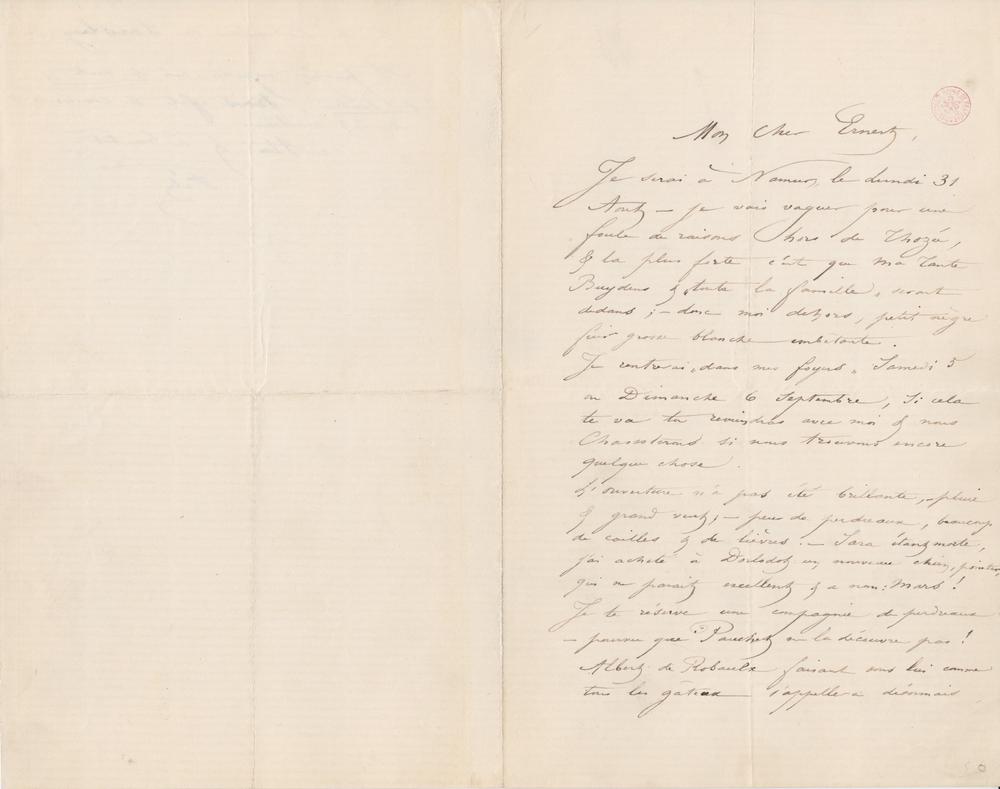 Mon cher Ernest,
Je serai à Namur, le Lundi 31
Août — je vais vaguer pour une
foule de raisons hors de Thozée,
& la plus forte c'est que ma tante
Buydens & toute la famille, seront
dedans ; — donc moi dehors, petit nègre
fuir grosse blanche embêtante.
Je rentrerai « dans mes foyers » Samedi 5
ou Dimanche 6 Septembre, Si cela
te va tu reviendras avec moi & nous
Chasserons si nous trouvons encore
quelque chose.
L'ouverture n'a pas été brillante, – pluie
& grand vent ; — peu de perdreaux, beaucoup
de cailles & de lièvres. — Sara étant morte,
j'ai acheté à Dorlodot un nouveau chien, pointer
qui me parait excellent & a nom : Mars !
Je te réserve une compagnie de perdreaux
— pourvu que Pauchet ne la découvre pas !
Albert de Robaulx faisant sous lui comme
tous les gâteux s'appellera désormais